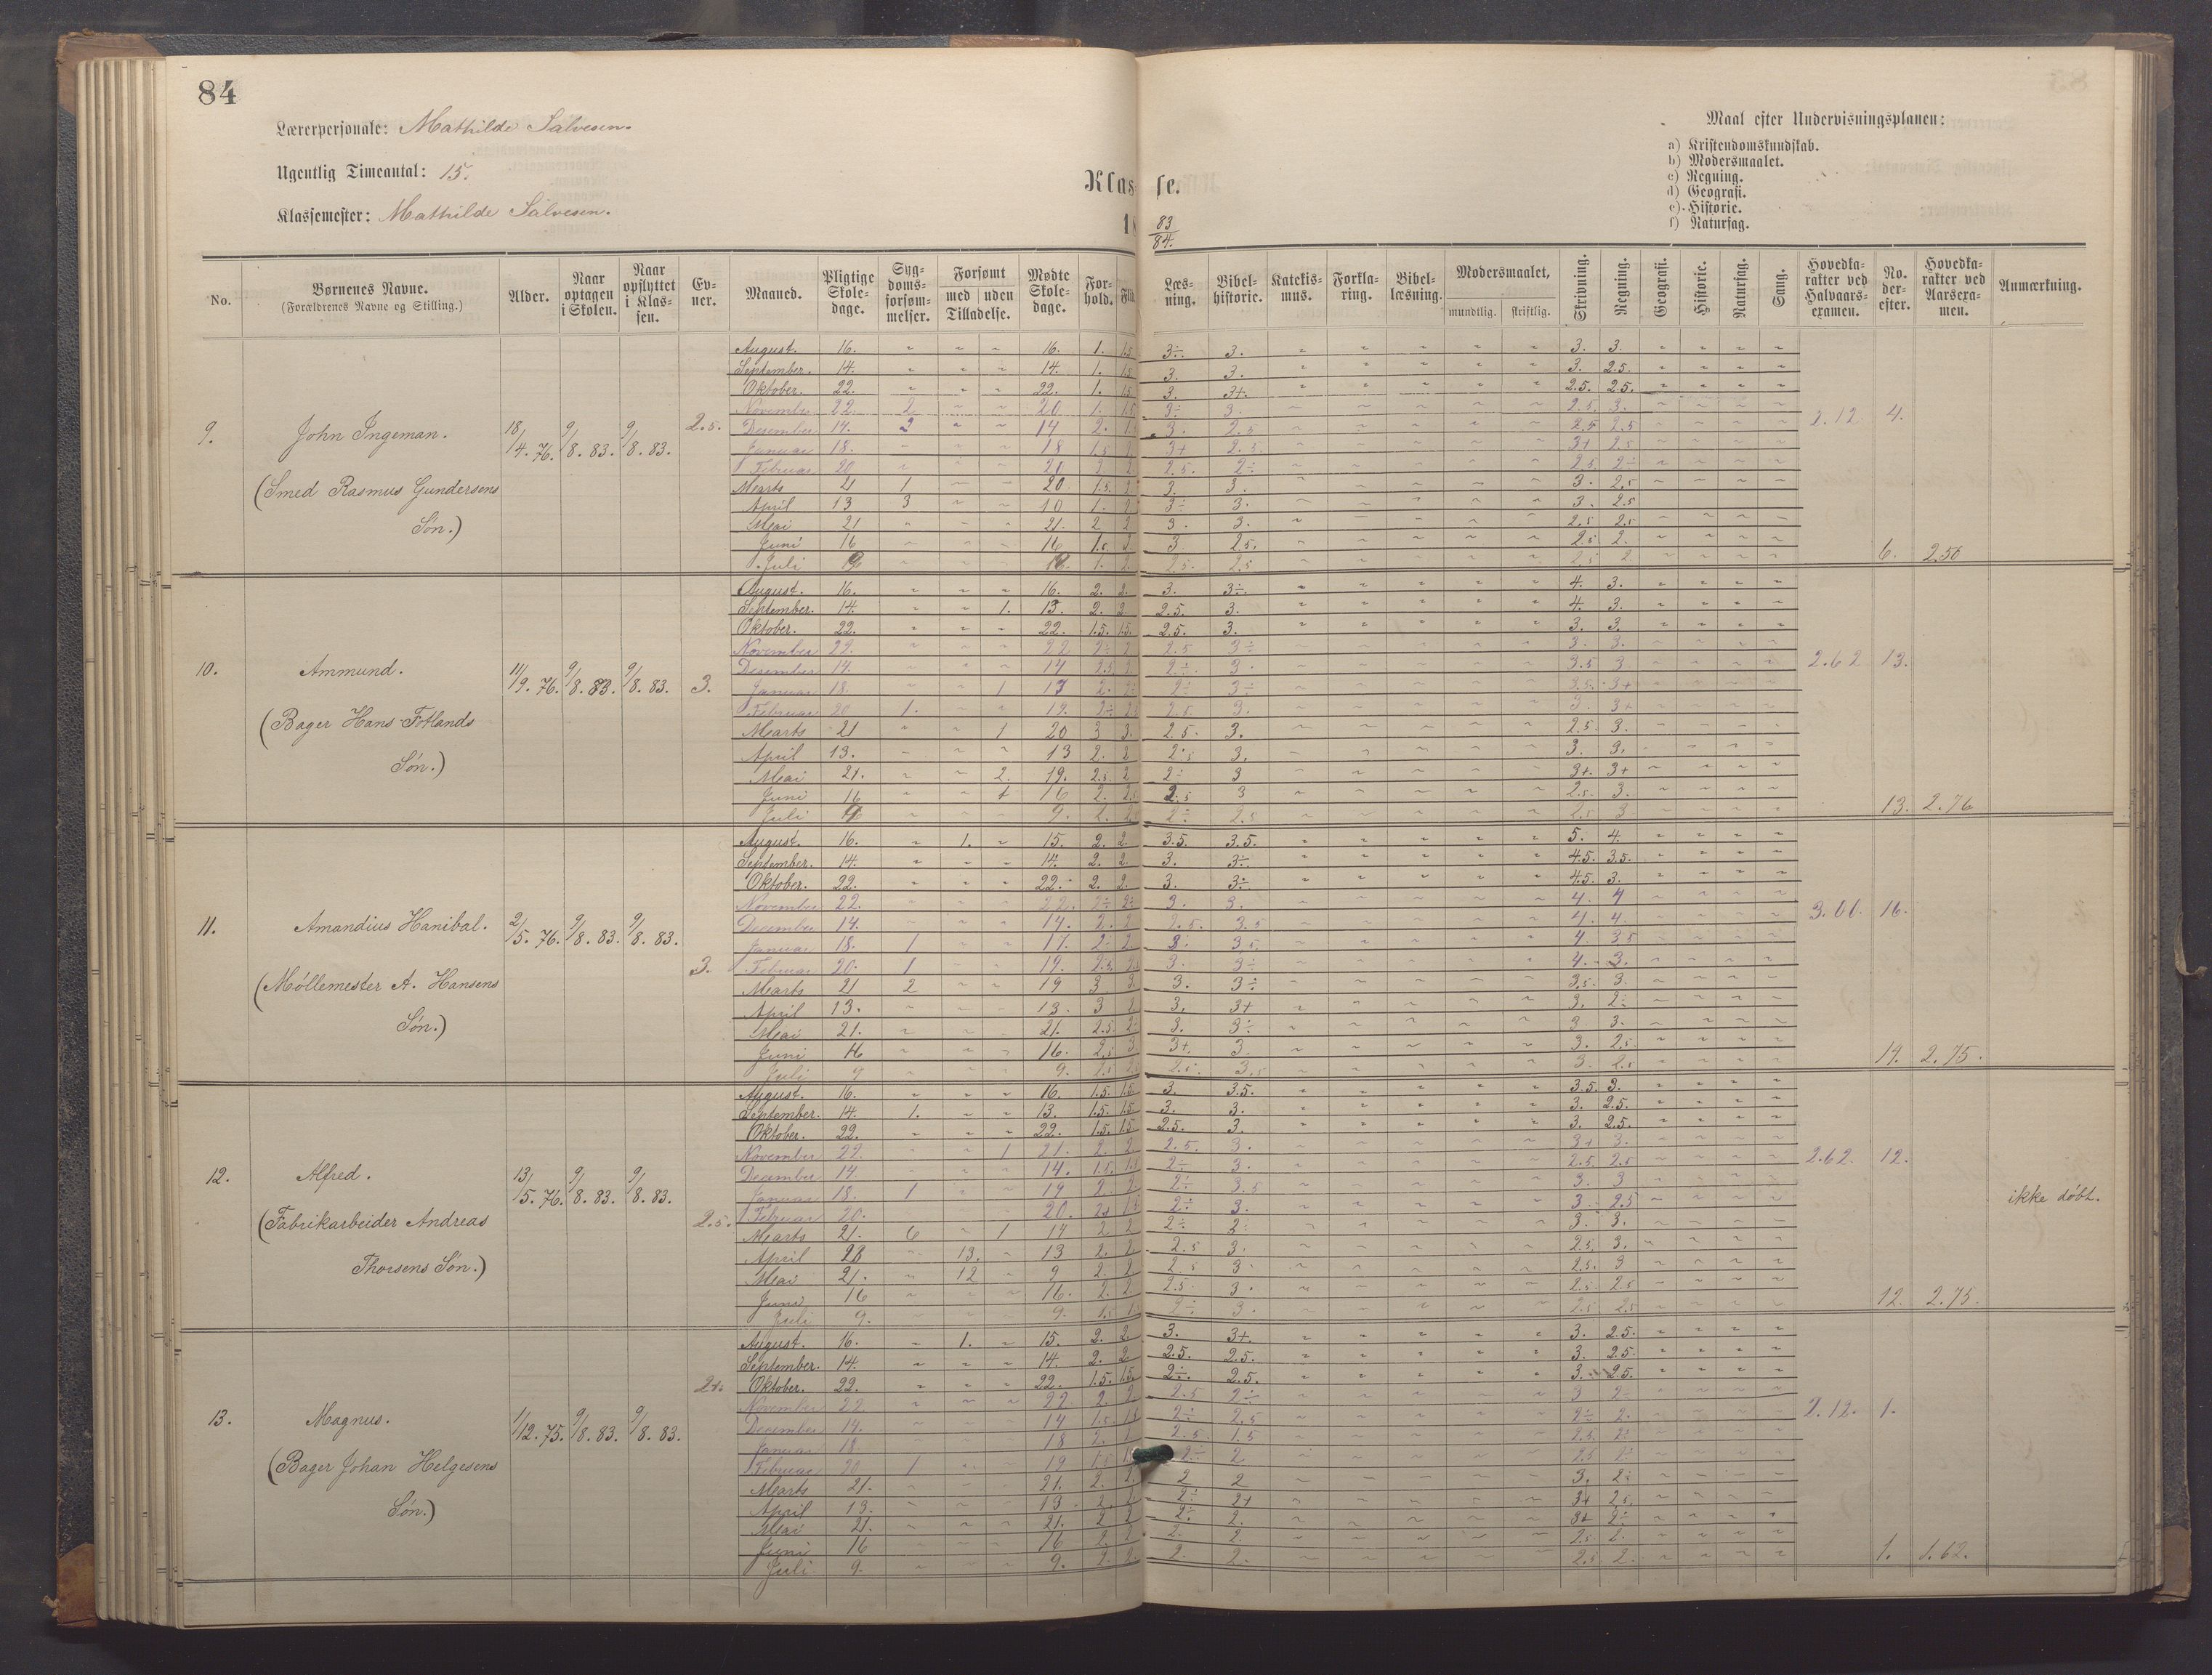 84
Lærerpersonale: Mathilde Salvesen.
Ugentlig Timeantal: 15.
Klassemester: Mathilde Salvesen.
Klasse.
18 83/84.
Maal efter Undervisningsplanen:
a) Kristendomskundskab.
b) Modersmaalet.
c) Regning.
d) Geografi.
e) Historie.
f) Naturfag.
No. Børnenes Navne. (Forældrenes Navne og Stilling.) Alder. Naar optagen i Skolen. Naar opflyttet i Klassen. Evner. Maaned. Pligtige Skoledage. Sygdomsforsømmelser. Forsømt med uden Tilladelse. Mødte Skoledage. Forhold. Læsning. Bibelhistorie. Katekismus. Forklaring. Bibellæsning. Modersmaalet, mundtlig. skriftlig. Skrivning. Regning. Geografi. Historie. Naturfag. Sang. Hovedkarakter ved Halvaarsexamen. No. derefter. Hovedkarakter ved Aarsexamen. Anmærkning.
9. John Ingeman. 18/4. 76. 9/8. 83. 9/8. 83. 2.5. 2.12 4.
(Smed Rasmus Gundersens
Søn.)
August. 16. 16. 1. 1.5 3÷ 3. 3. 3.
September. 14. 14. 1. 1.5 3. 3. 3. 2.5.
Oktober. 22. 22. 1. 1.5 3. 3+ 2.5. 2.5.
November 22. 2 20 1. 1.5 3÷ 3. 2.5. 3.
Desember 14. 14 2. 3. 2.5 2.5 2.5
Januar 18. 18 1.5 3+ 2.5 3+ 2.5
Februar 20 20 2.5. 2÷ 2.5 2÷
Marts 21 1 20 1.5. 2 3. 3. 3. 2.5
April 13 3 10 1. 2 3÷ 3. 3. 2.5
Mai 21 21. 2 2 3. 3. 2.5 2.5
Juni 16 16 1.5 3 2.5. 2.5 2.
Juli 1. 2. 2.5. 2.5 2.5 2 6. 2.50
10. Ammund. 11/9. 76. 9/8. 83. 9/8. 83. 3. 2.62 13.
(Bager Hans Fotlands
Søn.)
August. 16. 16. 2. 2. 3. 3÷ 4. 3.
September. 14. 1. 13. 2. 2 2.5. 3. 4. 3.
Oktober. 22. 22. 1.5. 1.5. 2.5. 3. 3. 3.
November 22. 22 2÷ 2 2.5 3÷ 3. 3.
Desember 14. 14 2.5 2. 2÷ 3. 3.5 3
Januar 18. 1 17 2. 2÷ 3÷ 3.5. 3+
Februar 20 1. 19. 2÷ 2.5 3. 3. 3+
Marts 21 1 20 3 3. 2.5. 3. 2.5. 3.
April 13. 13 2. 2 2.5 3. 3. 3.
Mai 21. 2. 19. 2.5. 2 2÷ 3 3+. 3+
Juni 16 16 2. 2.5 2.5 3 2.5. 3.
Juli 9 9. 2. 2÷ 2.5 2.5 3 13. 2.76
11. Amandius Hanibal. 2/5. 76. 9/8. 83. 9/8. 83. 3. 16.
(Møllemester A. Hansens
Søn.)
August. 16. 1. 15. 2. 2. 3.5. 3.5. 5. 4.
September. 14. 14. 2. 2. 3. 3÷. 4.5. 3.5.
Oktober. 22. 22. 2. 2. 3. 3÷ 4.5. 3.
November 22. 22. 2÷ 2÷ 3. 3. 4. 4
December 14. 14. 2. 2 2.5. 3.5 4. 4.
Januar 18. 1 17. 2÷ 2. 3. 3.5. 4. 3.5
Februar 20. 1 19. 2.5. 3. 3÷ 4. 3.
Marts 21 2 19 3 3. 3. 3÷ 3.5. 3.
April 13. 13. 3 2 3. 3+ 3. 2÷
Mai 21. 21. 2.5. 3. 3÷ 3 3.
Juni 16 16. 2.5 3. 3+. 3. 3. 2.5
Juli 9 9. 2.5 2.5. 3.5 3 2.5 19. 2.75.
12. Alfred. 13/5. 76. 9/8. 83. 9/8. 83. 2.5. 2.62. 12. ikke døbt.
(Fabrikarbeider Andreas
Thorsens Søn.)
August. 16. 16. 1.5. 1.5. 3. 3.5. 3.5. 3.
September. 14. 1. 13. 1.5. 1.5 3. 3. 3. 2.5.
Oktober. 22. 22. 1.5. 1.5 2.5. 3. 3. 2.5.
November 22. 1 21. 2. 2. 2.5. 3. 3+ 3.
December 14. 14. 1.5. 1.5 2÷ 3. 2.5. 2.5
Januar 18. 1 2. 2. 2÷ 3.5 3. 3
Februar 20. 20. 2÷ 3. 3. 2.5
Marts 21. 6 1 14 2 2 2÷ 2÷ 3. 3.
April 13. 13 2. 2. 2.5 3. 2.5 3.
Mai 21. 12 9 2. 2 2.5 3. 2.5. 3
Juni 16 16. 2. 2 2.5. 3. 2.5. 2.5
Juli 9. 9. 1.5 2÷ 3. 2.5 2.5 12. 2.75.
13. Magnus. 1/12. 75. 9/8. 83. 9/8. 83. 2+. 2.12. 1.
(Bager Johan Helgesens
Søn.)
August. 16. 1. 15. 2. 2. 3. 3+. 3. 2.5.
September. 14. 14. 2. 2. 2.5. 2.5. 3. 2.5.
Oktober. 22. 22. 1.5. 1.5. 2÷. 2.5. 3. 2.5.
November 22 22 2. 2. 2.5 2÷ 3 2÷
December 14. 14 1.5 2÷ 2.5 2÷ 2.
Januar 18 18 2. 2.5 1.5 2.5. 2÷
Februar 20 1 19 2÷ 2 2.5 2÷
Marts 21. 21. 2. 2. 2 2 3. 2÷
April 13. 13. 2. 2÷ 2+ 3+ 2.5.
Mai 21. 21. 2 2 2÷ 2. 3+ 2÷
Juni 16 16 2 2 2. 2. 2.5 2.
Juli 9. 9. 2. 2. 2. 2. 2.5 2. 1. 1.62.